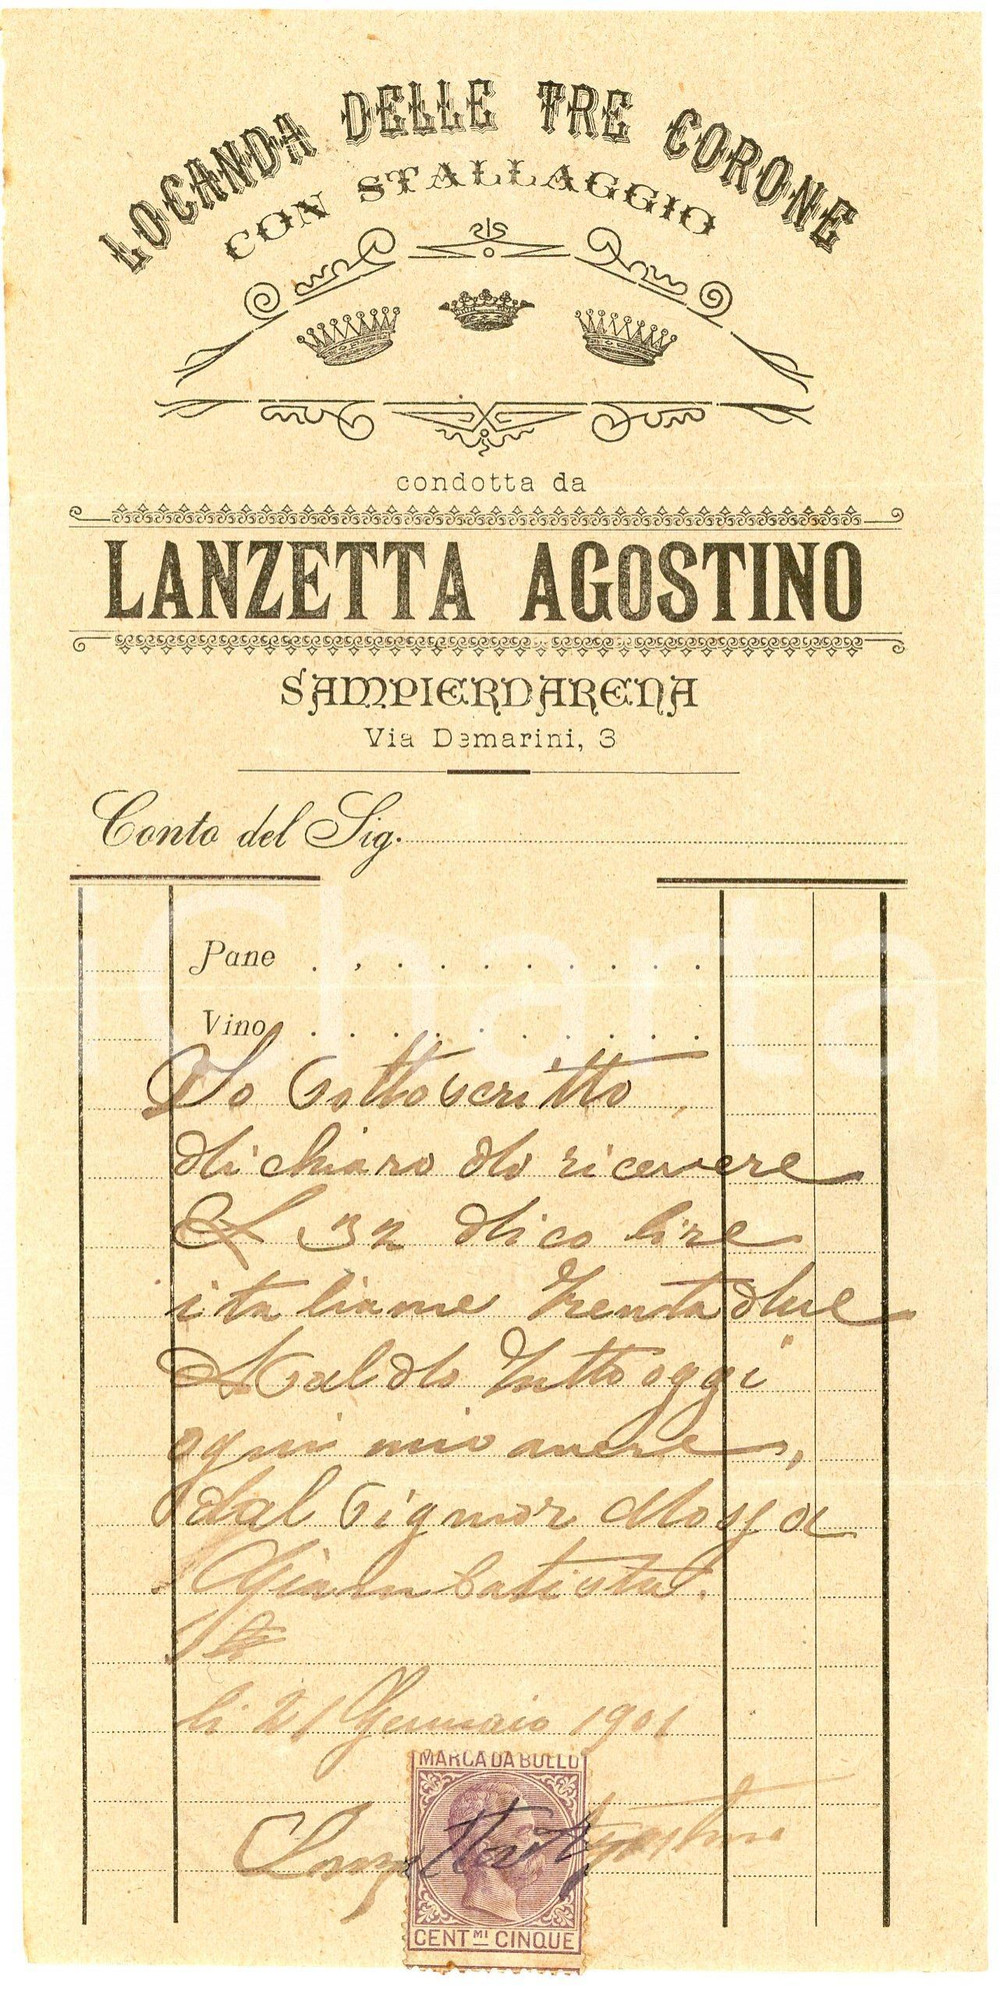 LOCANDA DELLE TRE CORONE
CON STALLAGGIO
condotta da
LANZETTA AGOSTINO
SAMPIERDARENA
Via Demarini, 3
Conto del Sig.
Pane
Vino
Io Sottoscritto
dichiaro di ricevere
L 32 dico lire
italiane Trentadue
Saldo Tutto oggi
ogni mio avere,
dal Signor
Giam Batista.
li 21 Gennaio 1901
MARCA DA BOLLO
Lanzetta Agostino
CENT.MI CINQUE
Charta